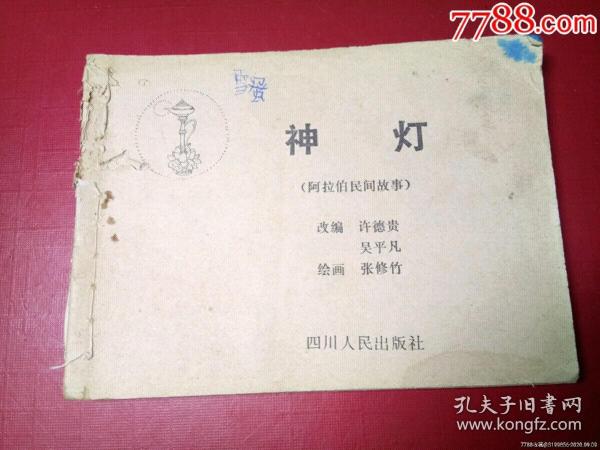 7788.com
雪蛋
神 灯
(阿拉伯民间故事)
改编 许德贵
吴平凡
绘画 张修竹
四川人民出版社
孔夫子旧书网
www.kongfz.com